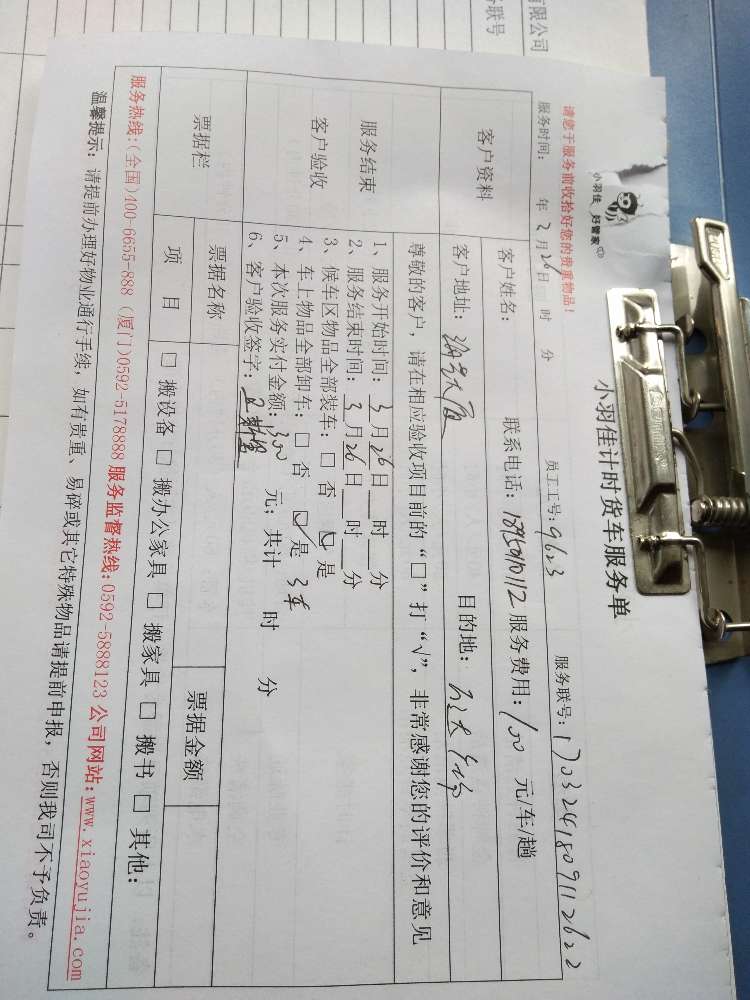 有限公司
联号
小羽佳 好管家
小羽佳计时货车服务单
请您于服务前收拾好您的贵重物品！
服务时间： 年 2月26日 时 分 员工工号：9623 服务联号：1703241809112622
客户资料
客户姓名： 联系电话： 服务费用：100 元/车/趟
客户地址： 目的地：
服务结束
客户验收
尊敬的客户，请在相应验收项目前的“□”打“√”，非常感谢您的评价和意见
1、服务开始时间：3月26日 时 分
2、服务结束时间：3月26日 时 分
3、候车区物品全部装车：□ 否 ☑ 是
4、车上物品全部卸车：□ 否 ☑ 是 3车
5、本次服务实付金额：300 元；共计 时 分
6、客户验收签字：
票据栏
票据名称 票据金额
项 目 □ 搬设备 □ 搬办公家具 □ 搬家具 □ 搬书 □ 其他：
服务热线：(全国)400-6655-888 (厦门)0592-5178888 服务监督热线：0592-5888123 公司网站：www.xiaoyujia.com
温馨提示：请提前办理好物业通行手续，如有贵重、易碎或其它特殊物品请提前申报，否则我司不予负责。